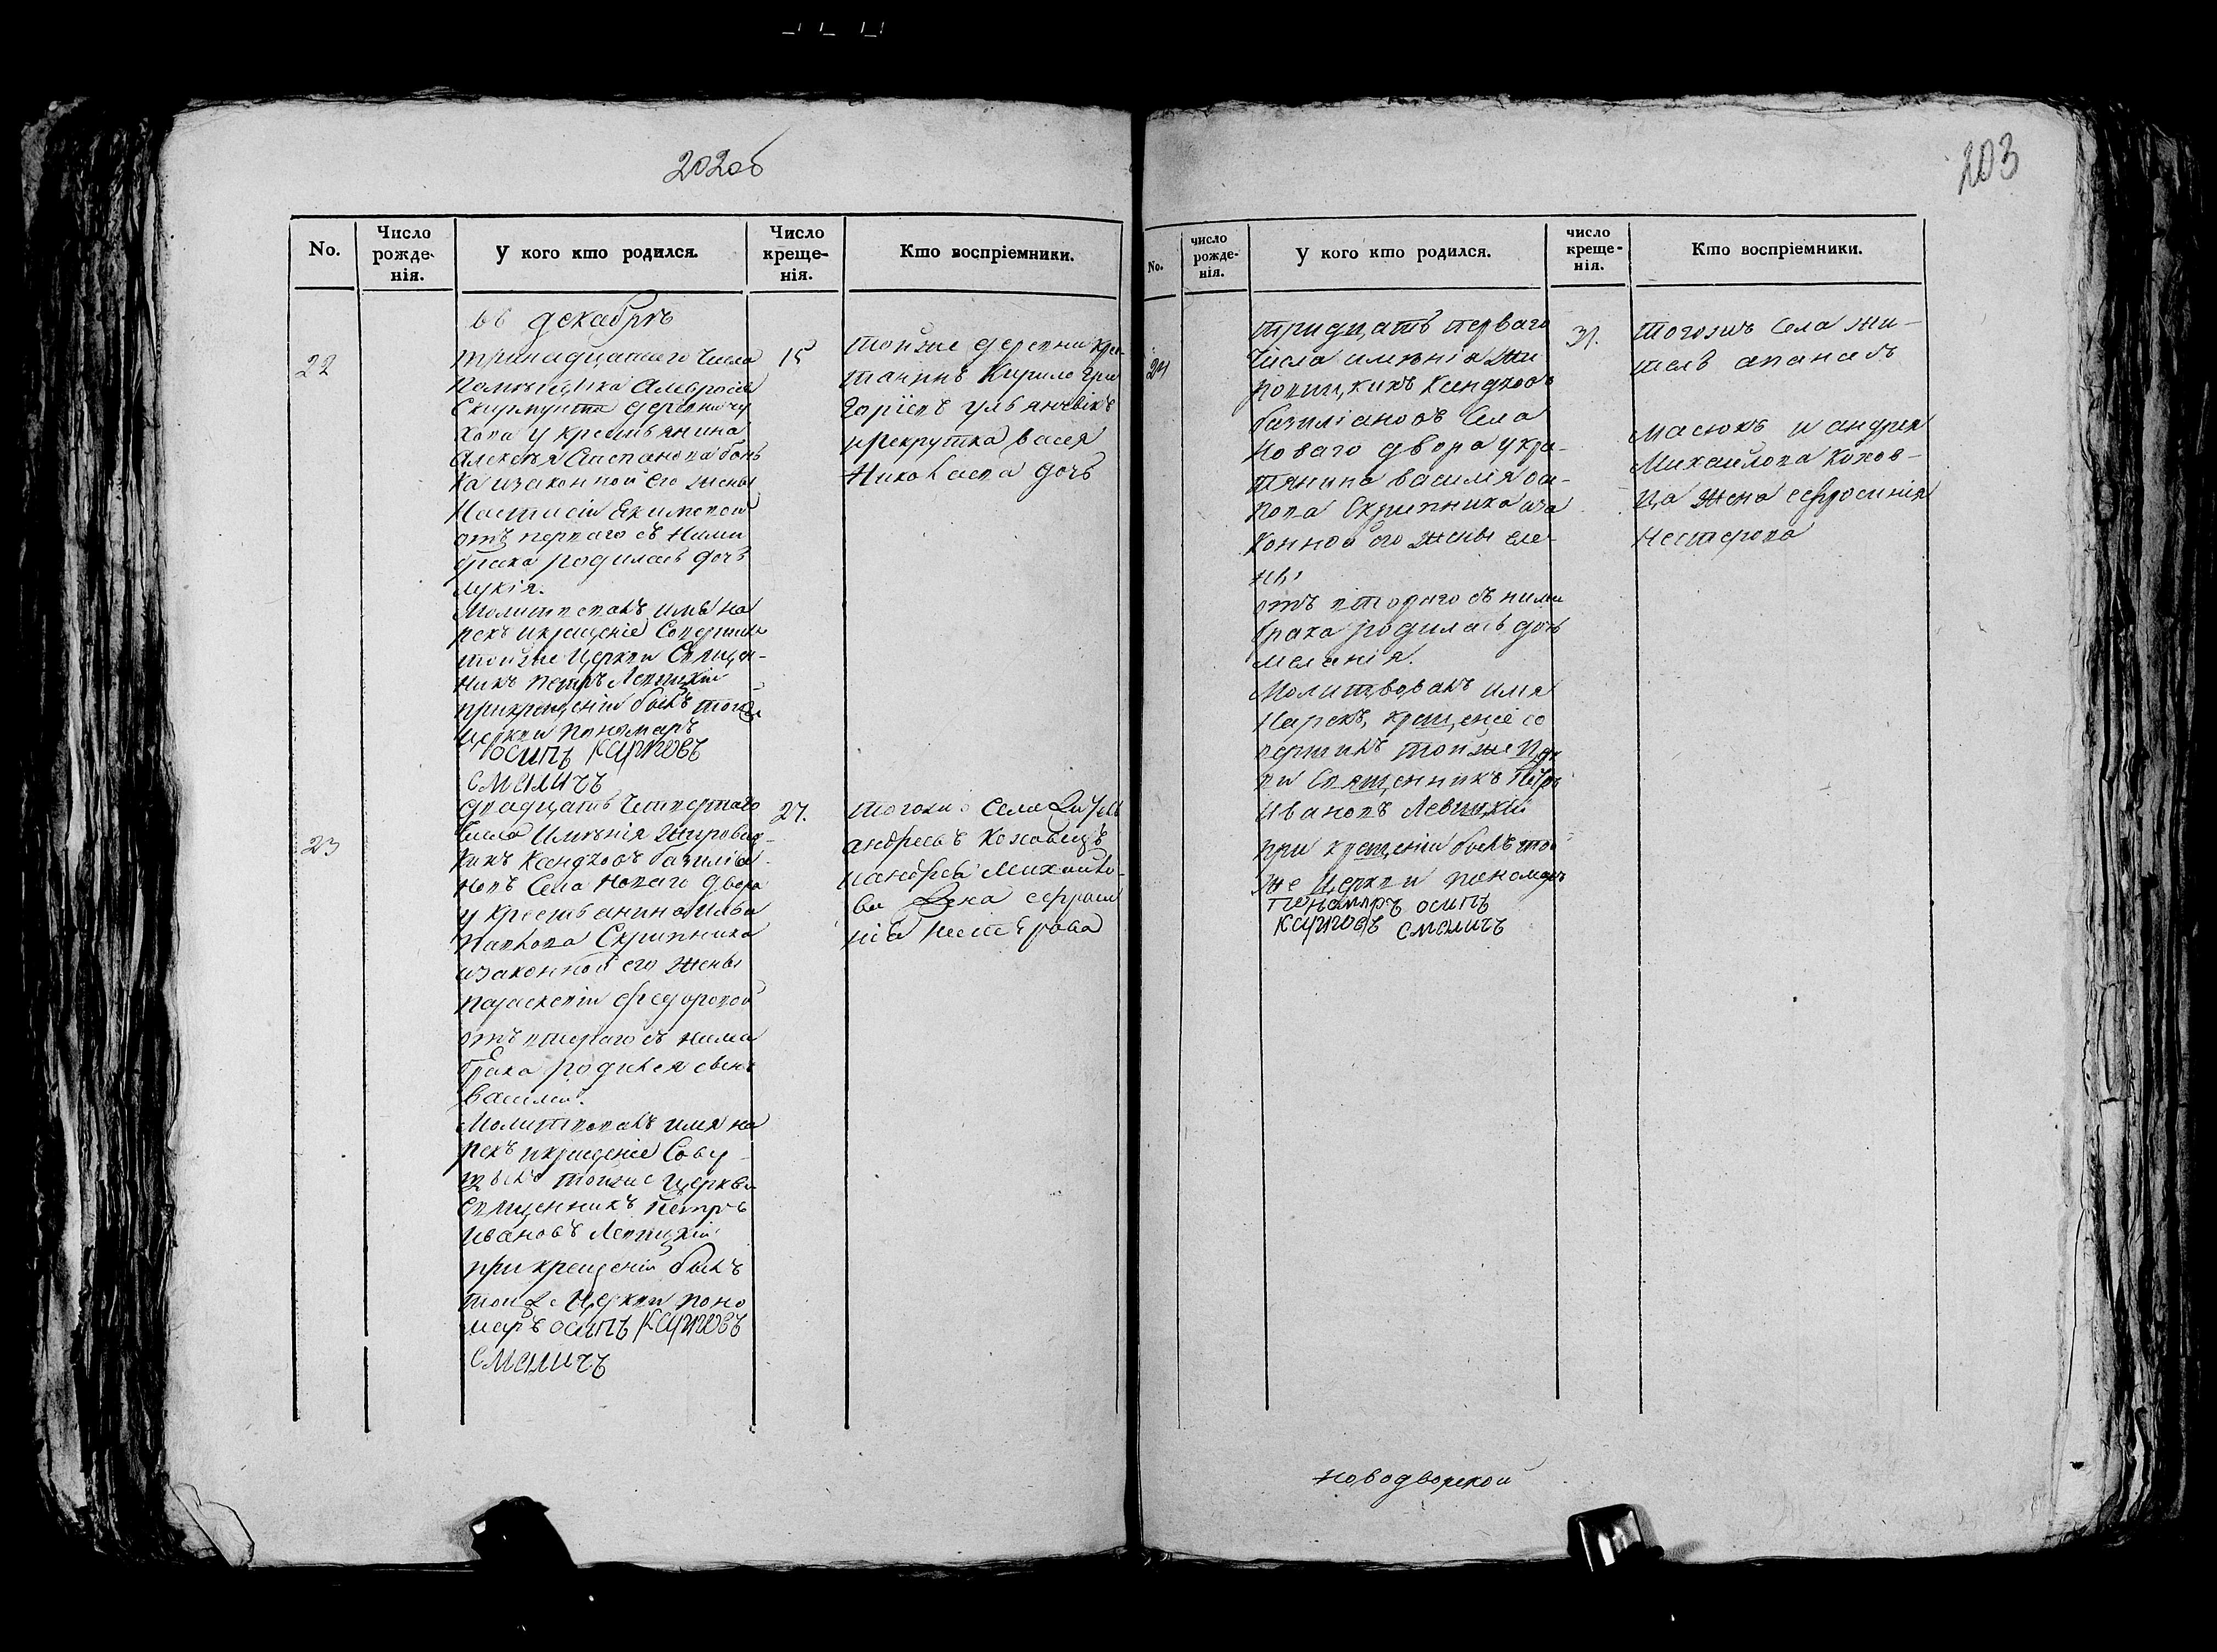 202об
No.
Число рожденія.
У кого кто родился.
Число крещенія.
Кто воспріемники.
Въ декабрѣ
22
тринадцатаго Числа
помѣщика Амвросія
Скирмунта деревни чу
хова у крестьянина
Алексѣя Степанова бонь
ка изаконной его жены
Настасіи Якимовой
отъ перваго съ ними
брака родилась дочь
лукія.
Молитвовалъ имя на
рекъ икрещеніе Совершилъ
тойже Церкви Священ-
никъ петръ Левицкій
прикрещеніи былъ тойже
Церкви пономарь
осипъ Карповъ
смоличъ
15
тойже деревни кре-
тянинъ Кирило Гри
горіевъ ульянчикъ
ирекрутка васея
Николаева дочь
23
двадцать Четвертаго
Числа Имѣнія Жировиц-
кихъ Ксендзовъ базиліа-
новъ Села Новаго двора
у крестьянина Ильи
Павлова Скрипника
изаконной его жены
параскевіи федоровой
отъ втораго съ ними
брака родился сынъ
Василій.
Молитвовалъ имя на
рекъ икрещеніе Сову-
тойже Церкви
Священникъ Петръ
Ивановъ Левицкій
при крещеніи былъ
тойже Церкви поно
марь осипъ Карповъ
смоличъ
27.
тогожъ Села
андрей Коховецъ
иандрея Михайло-
ва жена ефроси
нія нестерова
203
No.
число рожденія.
У кого кто родился.
число крещенія.
Кто воспріемники.
24
тридцать перваго
Числа имѣнія Жи
ровицкихъ Ксендзовъ
базиліановъ Села
Новаго двора укре-
тянина василія
Скрипника иза
конной его жены еле-
ны
отъ втораго съ ними
брака родилась дочь
меланія.
Молитвовалъ имя
Нарекъ, крещеніе со
вершилъ тойже Цер
кви Священникъ Петръ
Ивановъ Левицкій
при крещеніи былъ той
же Церкви пономарь
пономаръ осипъ
Карповъ смоличъ
31.
тогожъ Села жи-
тель апанасъ
масюкъ и андрея
Михайлова Кохов-
ца жена ефросинія
Нестерова
новодворской